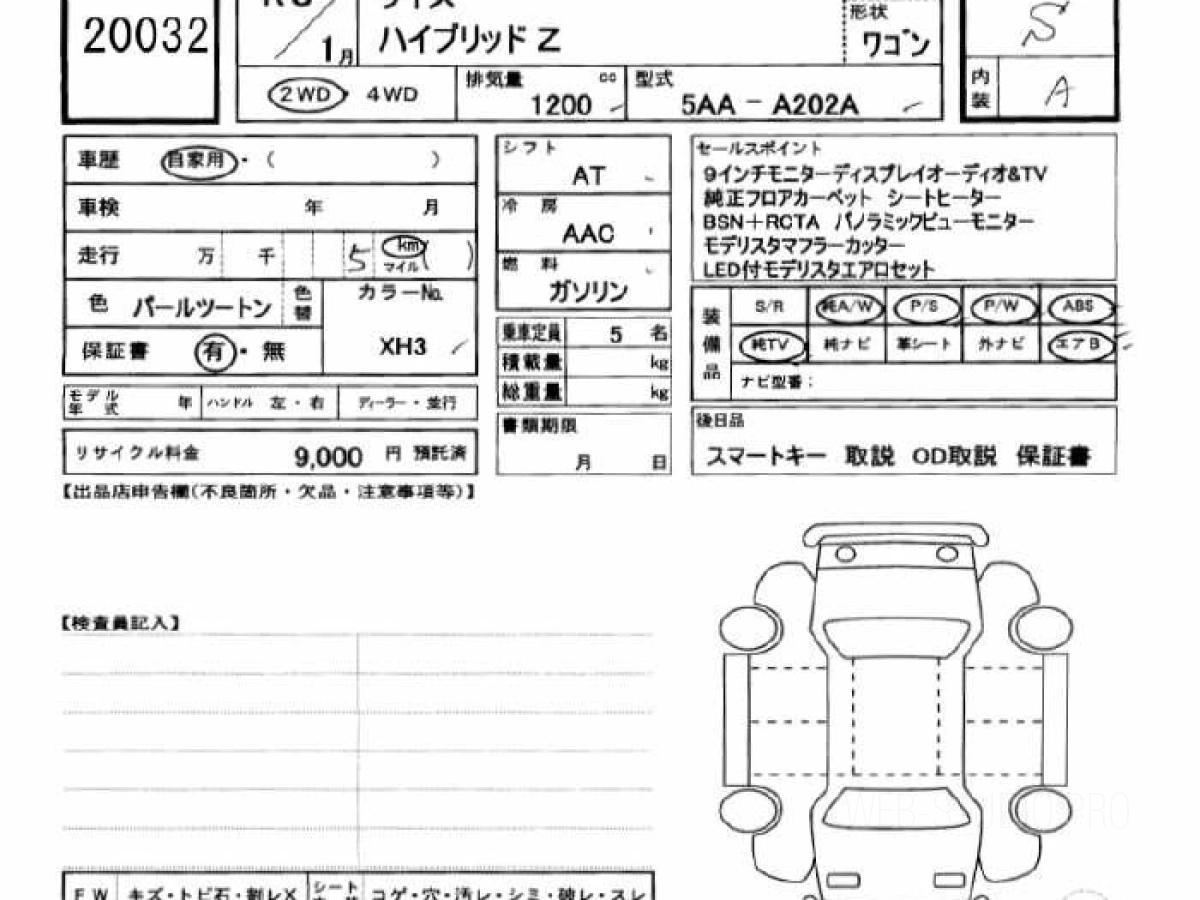 20032
1月
ハイブリッド Z
形状
ワゴン
S
2WD・4WD
排気量 cc
1200
型式
5AA － A202A
内装
A
車歴 自家用・( )
車検 年 月
走行 万 千 5 km マイル ( )
色 パールツートン 色替
カラーNo.
XH3
保証書 有・無
モデル年式 年 ハンドル 左・右 ディーラー・並行
リサイクル料金 9,000 円 預託済
シフト
AT
冷房
AAC
燃料
ガソリン
乗車定員 5 名
積載量 kg
総重量 kg
書類期限
月 日
セールスポイント
9インチモニターディスプレイオーディオ&TV
純正フロアカーペット シートヒーター
BSN＋RCTA パノラミックビューモニター
モデリスタマフラーカッター
LED付モデリスタエアロセット
装備品
S/R 純A/W P/S P/W ABS
純TV 純ナビ 革シート 外ナビ エアB
ナビ型番：
後日品
スマートキー 取説 OD取説 保証書
【出品店申告欄(不良箇所・欠品・注意事項等)】
【検査員記入】
FW キズ・トビ石・割レX シート コゲ・穴・汚レ・シミ・破レ・スレ